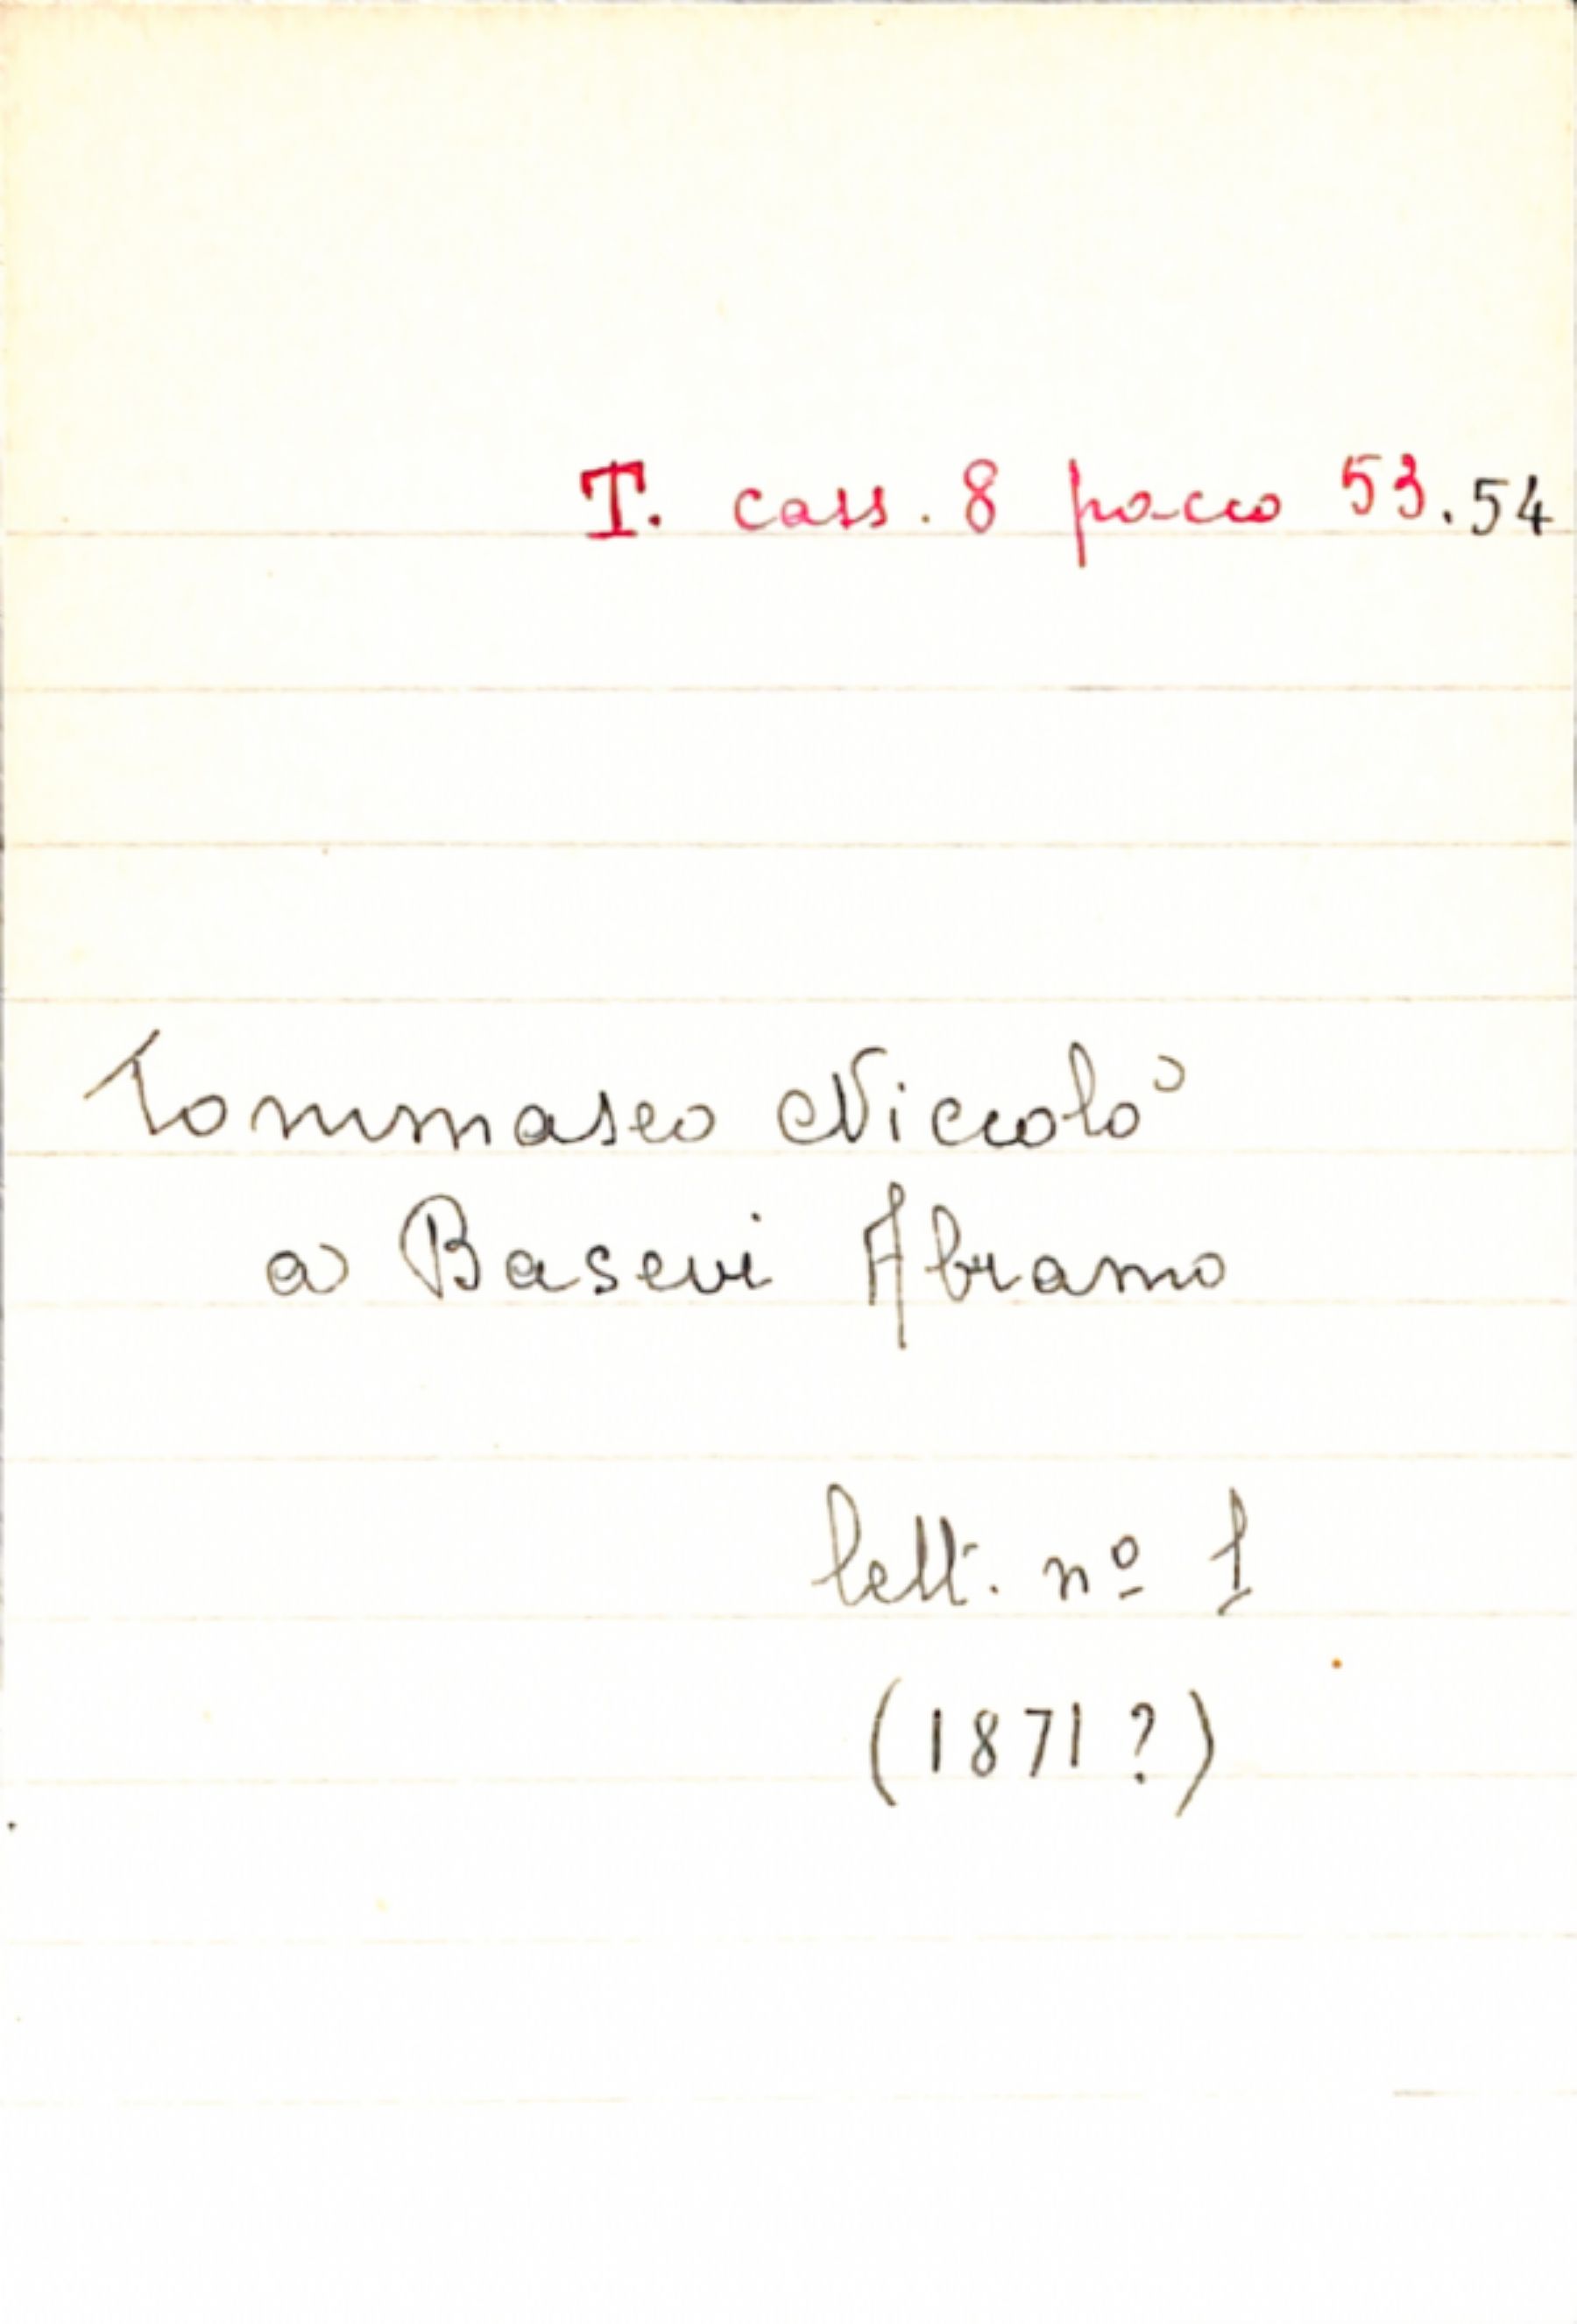 T. cass. 8 pacco 53.54
Tommaseo Niccolò
a Basevi Abramo
lett. nº 1
(1871?)